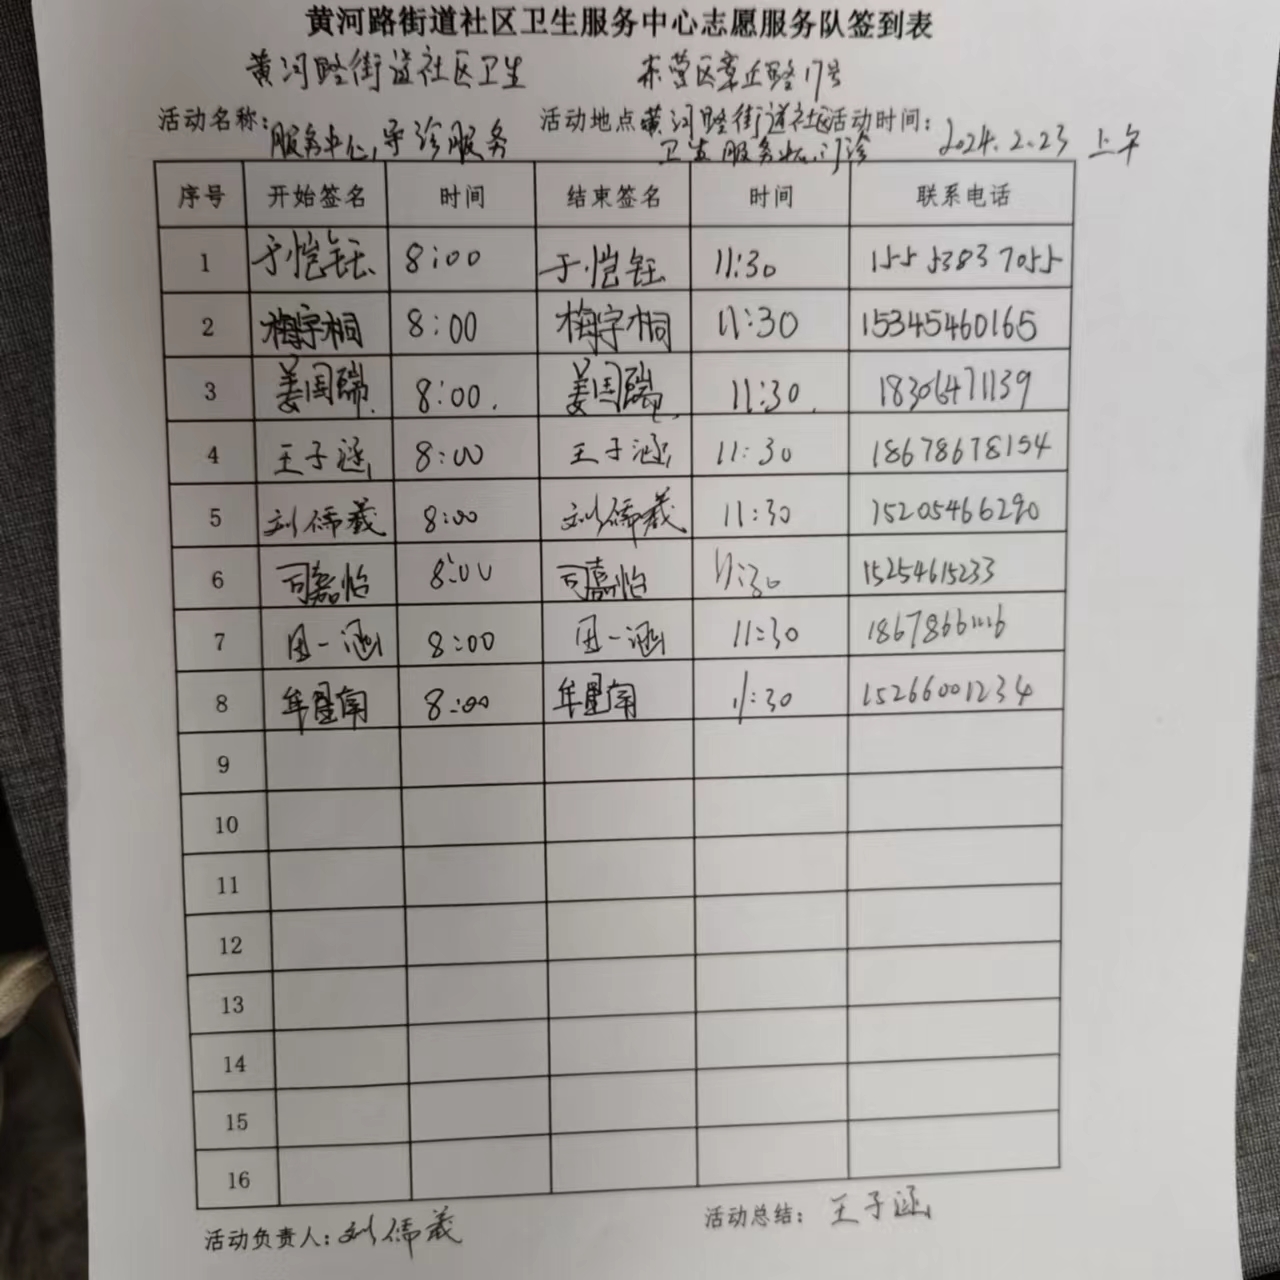 黄河路街道社区卫生服务中心志愿服务队签到表
黄河路街道社区卫生 东营区章丘路17号
活动名称: 服务中心,导诊服务 活动地点 黄河路街道社区 活动时间: 2024.2.23 上午
卫生服务中心门诊
序号 开始签名 时间 结束签名 时间 联系电话
1 于恺钰 8:00 于恺钰 11:30 15553837055
2 梅宇桐 8:00 梅宇桐 11:30 15345460165
3 姜国瑞 8:00 姜国瑞 11:30 18306471139
4 王子涵 8:00 王子涵 11:30 18678678154
5 刘儒羲 8:00 刘儒羲 11:30 15205466290
6 司嘉怡 8:00 司嘉怡 11:30 15254615233
7 田一涵 8:00 田一涵 11:30
8 8:00 11:30 15266001234
9
10
11
12
13
14
15
16
活动负责人: 刘儒羲 活动总结: 王子涵